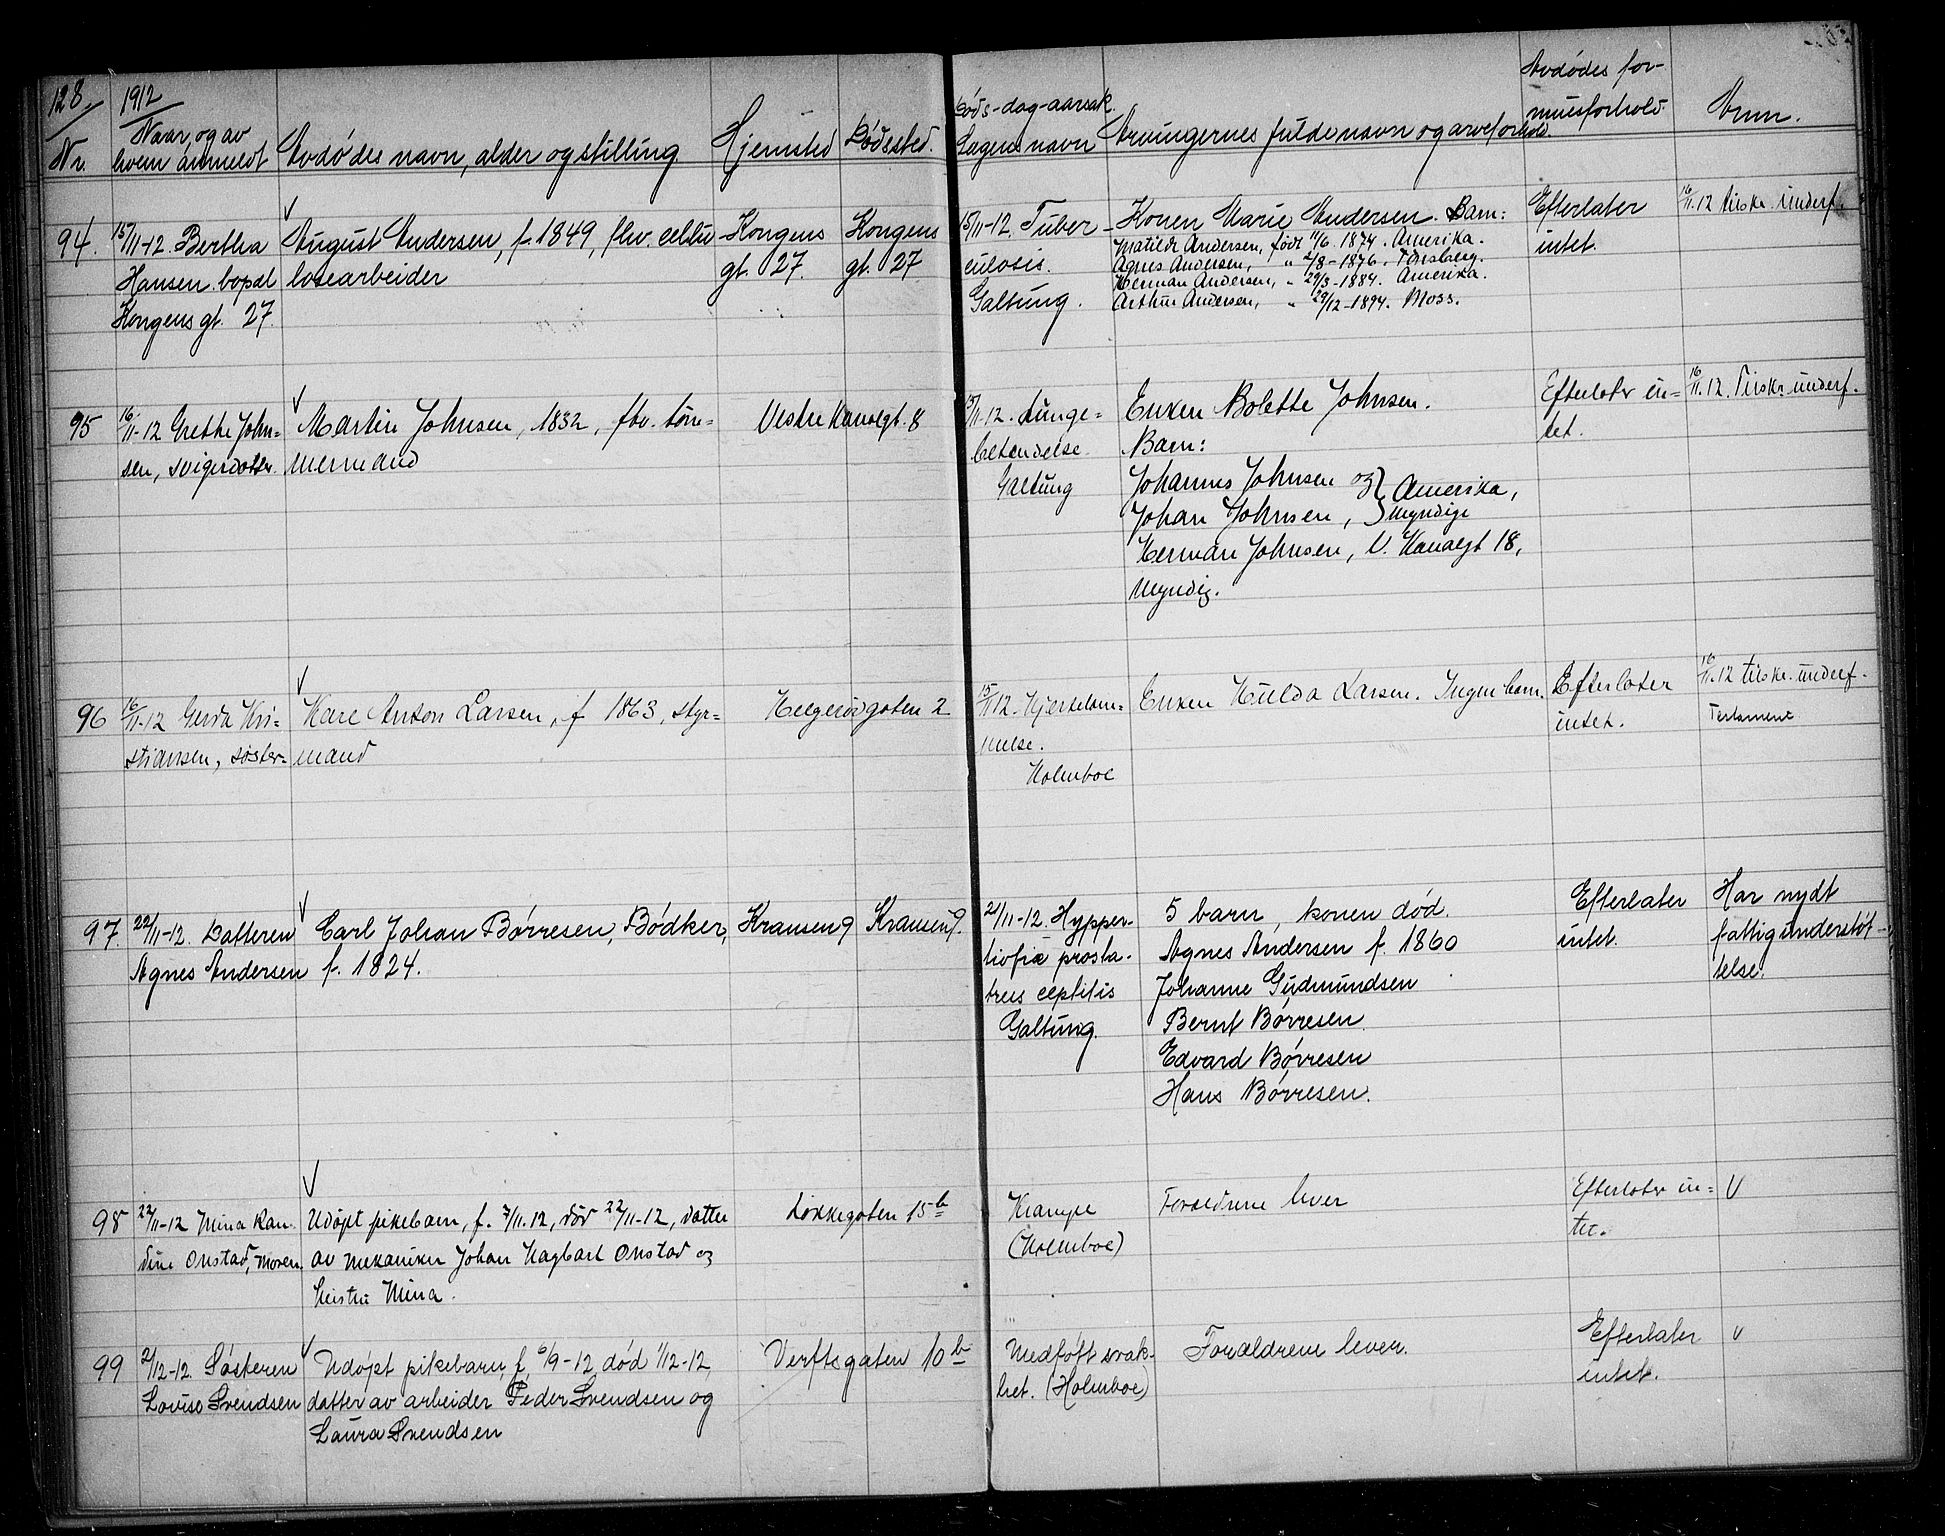 128. 1912
Nr.
Naar og av
hvem anmeldt
Avdødes navn, alder og stilling
Hjemsted
Dødssted.
Døds-dag-aarsak.
Lægens navn
Arvingernes fulde navn og arveforhold
Avdødes for-
muesforhold.
Anm.
94. 15/11-12. Bertha
Hansen bopæl
Kongens gt. 27.
August Andersen, f. 1849, fhv. cellu-
losearbeider
Kongens
gt. 27.
Kongens
gt. 27
15/11-12. Tuber-
culosis.
Galtung.
Konen Marie Andersen. Barn:
Matilde Andersen, født 11/6. 1874. Amerika.
Agnes Andersen, " 2/8-1876. Tønsberg.
Herman Andersen, " 29/3-1884. Amerika.
Arthur Andersen, " 29/12-1894. Moss.
Efterlater
intet.
16/11.12 tilskr. underf.
95 16/11-12 Grethe John-
sen, svigerdatter
Martin Johnsen, 1832, fhv. tøm-
mermand
Vestre Kanalgt. 8
/11-12. Lunge-
betendelse
Galtung
Enken Bolette Johnsen.
Barn:
Johannes Johnsen og } Amerika,
Johan Johnsen, } myndige
Herman Johnsen, V. Kanalgt 18,
myndig.
Efterlater in-
tet.
16/11.12. Tilskr. underf.
96 16/11-12 Gerda Kri-
stiansen, søster
Karl Anton Larsen, f 1863, styr-
mand
Helgerødgaten 2
15/11 12. Hjertelam-
melse.
Holmboe
Enken Hulda Larsen. Ingen barn.
Efterlater
intet.
16/11.12 tilskr. underf.
Testament
97. 22/11-12. Datteren
Agnes Andersen
Carl Johan Børresen, Bødker,
f. 1824.
Kransen 9
Kransen 9.
21/11-12. Hypper-
trofia prosta-
treus
Galtung.
5 barn, konen død.
Agnes Andersen f. 1860
Johanne Gudmundsen
Bernt Børresen
Edvard Børresen
Hans Børresen.
Efterlater
intet.
Har nydt
fattigunderstøt-
telse.
98 22/11-12 Mina Kan-
dine Onstad, moren.
Udøpt pikebarn, f. 7/11.12, død 22/11-12, datter
av mekaniker Johan Hagbart Onstad og
hustru Mina.
Løkkegaten 15 b
Krampe
(Holmboe)
Forældrene lever
Efterlater in-
tet.
99 2/12-12. Søsteren
Lovise Svendsen
Udøpt pikebarn, f. 6/9-12 død 1/12-12,
datter av arbeider Peder Svendsen og
Laura Svendsen
Verftsgaten 10 b
Medføtt svak-
het. (Holmboe)
Forældrene lever.
Efterlater
intet.